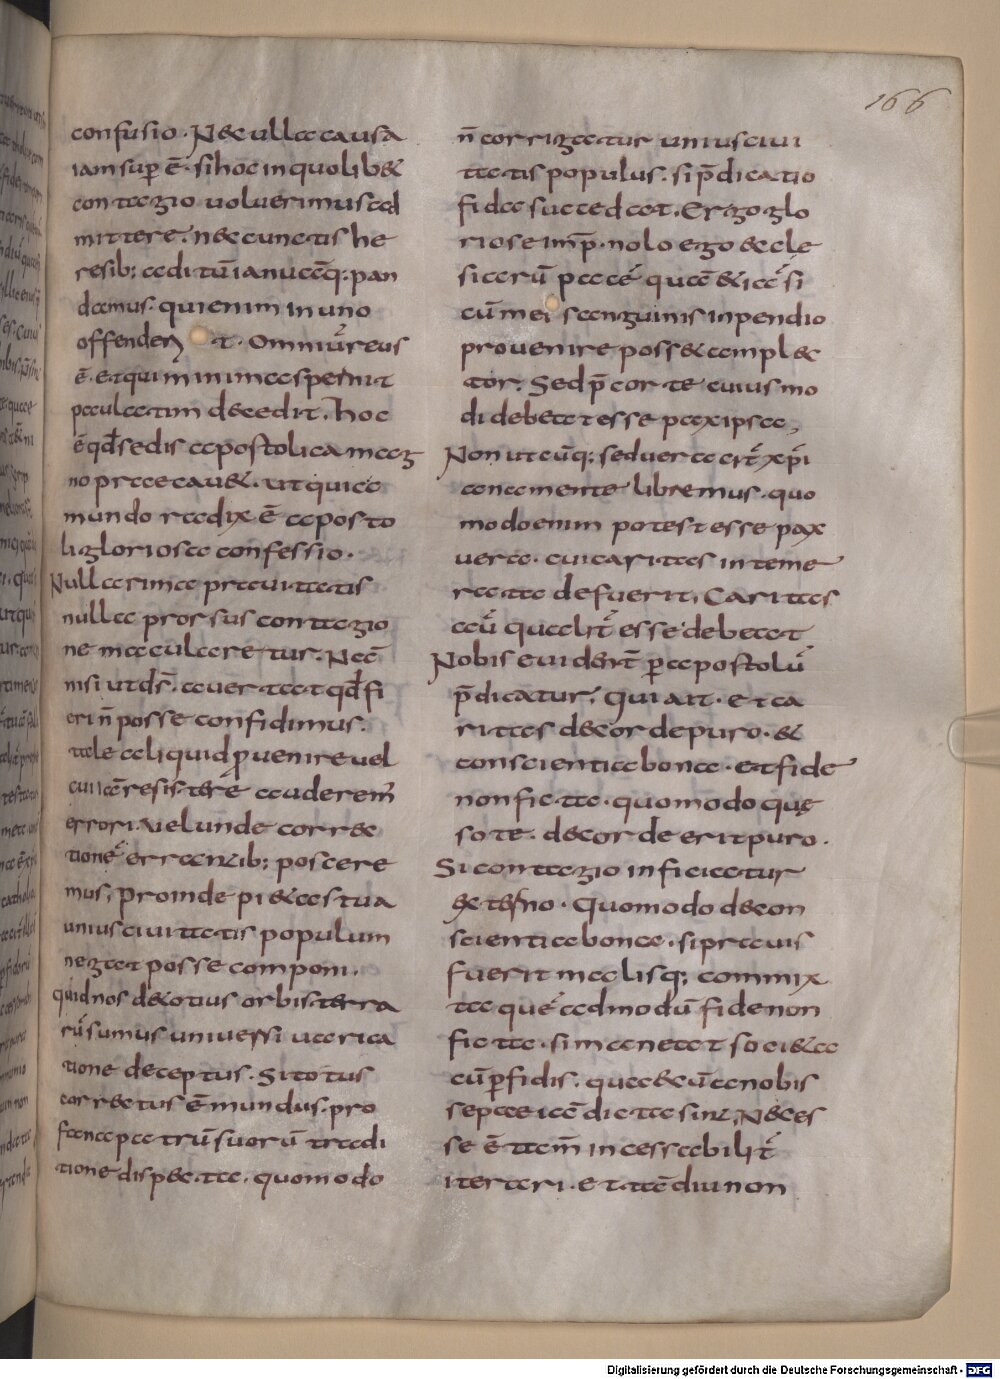 166
confusio. Nec ulla causa
iam sup̄ ē. si hoc in quolib&
contagio uoluerimus ad
mittere. n& cunctis he
resib; aditū ianuāq; pan
damus. qui enim in uno
offender t. omniū reus
ē. et qui minima spernit
paulatim decedit. hoc
ē qđ sedis apostolica mag
no praecau&. ut quia
mundo radix ē aposto
li gloriosa confessio.
Nulla rima prauitatis
nulla prorsus contagio
ne macularetur. Nā
nisi ut d̄s. auertat qđ fi
eri n̄ posse confidimus.
tale aliquid ꝓuenire uel
cui rēsistere auderem̄
errori. uel unde correc
tionē errantib; poscere
mus. Proinde pi&as tua
unius ciuitatis populum
negat posse componi.
quid nos de totius orbis terra
rū sumus uniuersi uaria
tione deceptus. Si totus
correctus ē mundus. pro
fana patrū suorū tradi
tione dispecta. quomodo
n̄ corrigatur unius ciui
tatis populus. si p̄dicatio
fida succedat. Ergo glo
riose imp̄. nolo ego eccle
siarū pacē quā etiā si
cū mei sanguinis inpendio
prouenire poss& amplec
tor. Sed p̄cor te cuius mo
di debeat esse pax ipsa,
Non utcūq; sed uera
ac mente libremus. quo
modo enim potest esse pax
uera. cui caritas inteme
rata defuerit, Caritas
aū qualit̄ esse debeat
Nobis euident̄ p̄ apostolū
p̄dicatur, Qui ait. et ca
ritas de corde puro. &
conscientia bona. et fide
non ficta. quomodo quę
so te. de corde erit puro.
Si contagio inficiatur
externo. Quomodo de con
scientia bona. si prauis
fuerit malisq; commix
ta quēadmodū fide non
ficta. si maneat sociata
cū p̄fidis. quae cū a nobis
saepae iā dicta sint, Neces
se ē tam̄ incessabilit̄
iterari. et tādiu non
Digitalisierung gefördert durch die Deutsche Forschungsgemeinschaft - DFG